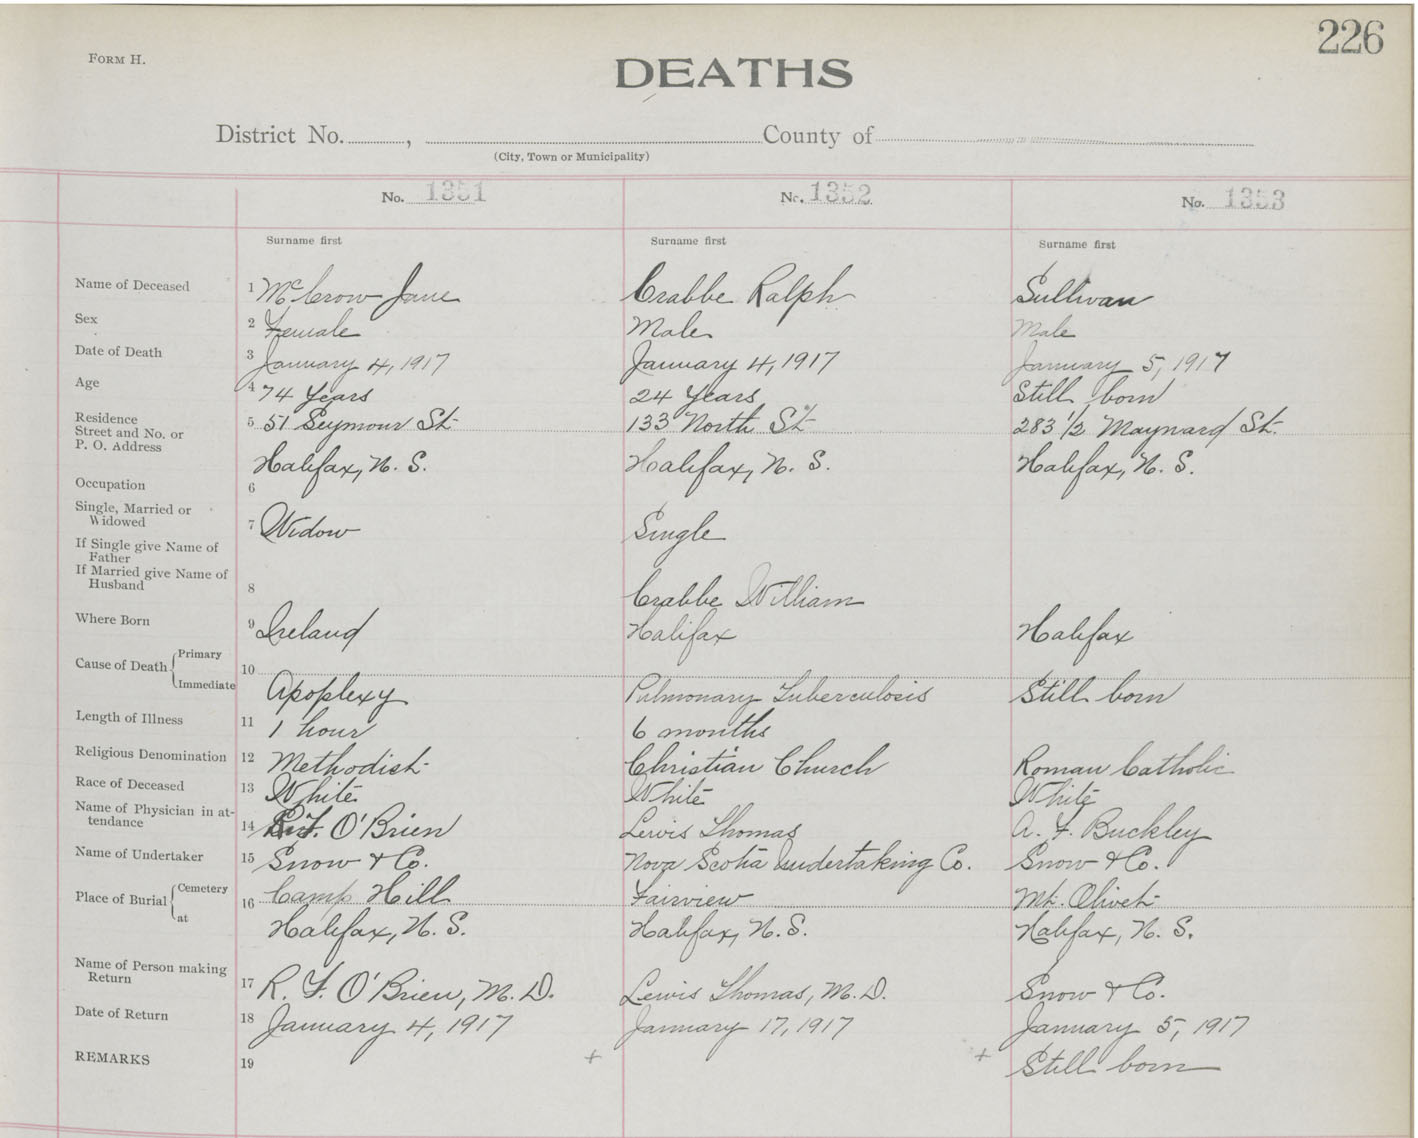 226
FORM H.
DEATHS
District No. , County of
(City, Town or Municipality)
No. 1351 No. 1352 No. 1353
Surname first Surname first Surname first
Name of Deceased 1 McCrow Jane Crabbe Ralph Sullivan
Sex 2 Female Male Male
Date of Death 3 January 4, 1917 January 4, 1917 January 5, 1917
Age 4 74 Years 24 Years Still born
Residence
Street and No. or 5 51 Seymour St. 133 North St. 283 1/2 Maynard St.
P. O. Address
Halifax, N. S. Halifax, N. S. Halifax, N. S.
Occupation 6
Single, Married or
Widowed 7 Widow Single
If Single give Name of
Father
If Married give Name of
Husband 8 Crabbe William
Where Born 9 Ireland Halifax Halifax
Cause of Death Primary 10
Immediate Apoplexy Pulmonary Tuberculosis Still born
Length of Illness 11 1 hour 6 months
Religious Denomination 12 Methodist Christian Church Roman Catholic
Race of Deceased 13 White White White
Name of Physician in at-
tendance 14 R. F. O'Brien Lewis Thomas A. F. Buckley
Name of Undertaker 15 Snow & Co. Nova Scotia Undertaking Co. Snow & Co.
Place of Burial Cemetery 16 Camp Hill Fairview Mt. Olivet
at Halifax, N. S. Halifax, N. S. Halifax, N. S.
Name of Person making
Return 17 R. F. O'Brien, M. D. Lewis Thomas, M. D. Snow & Co.
Date of Return 18 January 4, 1917 January 17, 1917 January 5, 1917
REMARKS 19 + + Still born